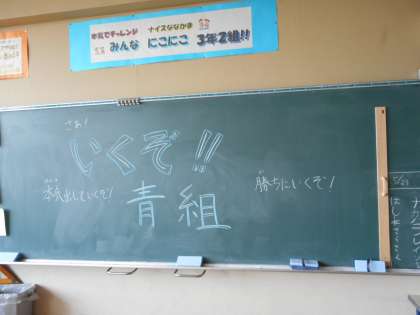 本気でチャレンジ ナイスななかま
みんな にこにこ 3年2組!!
さぁ!
いくぞ!!
本気出していくぞ!
勝ちにいくぞ!
青組